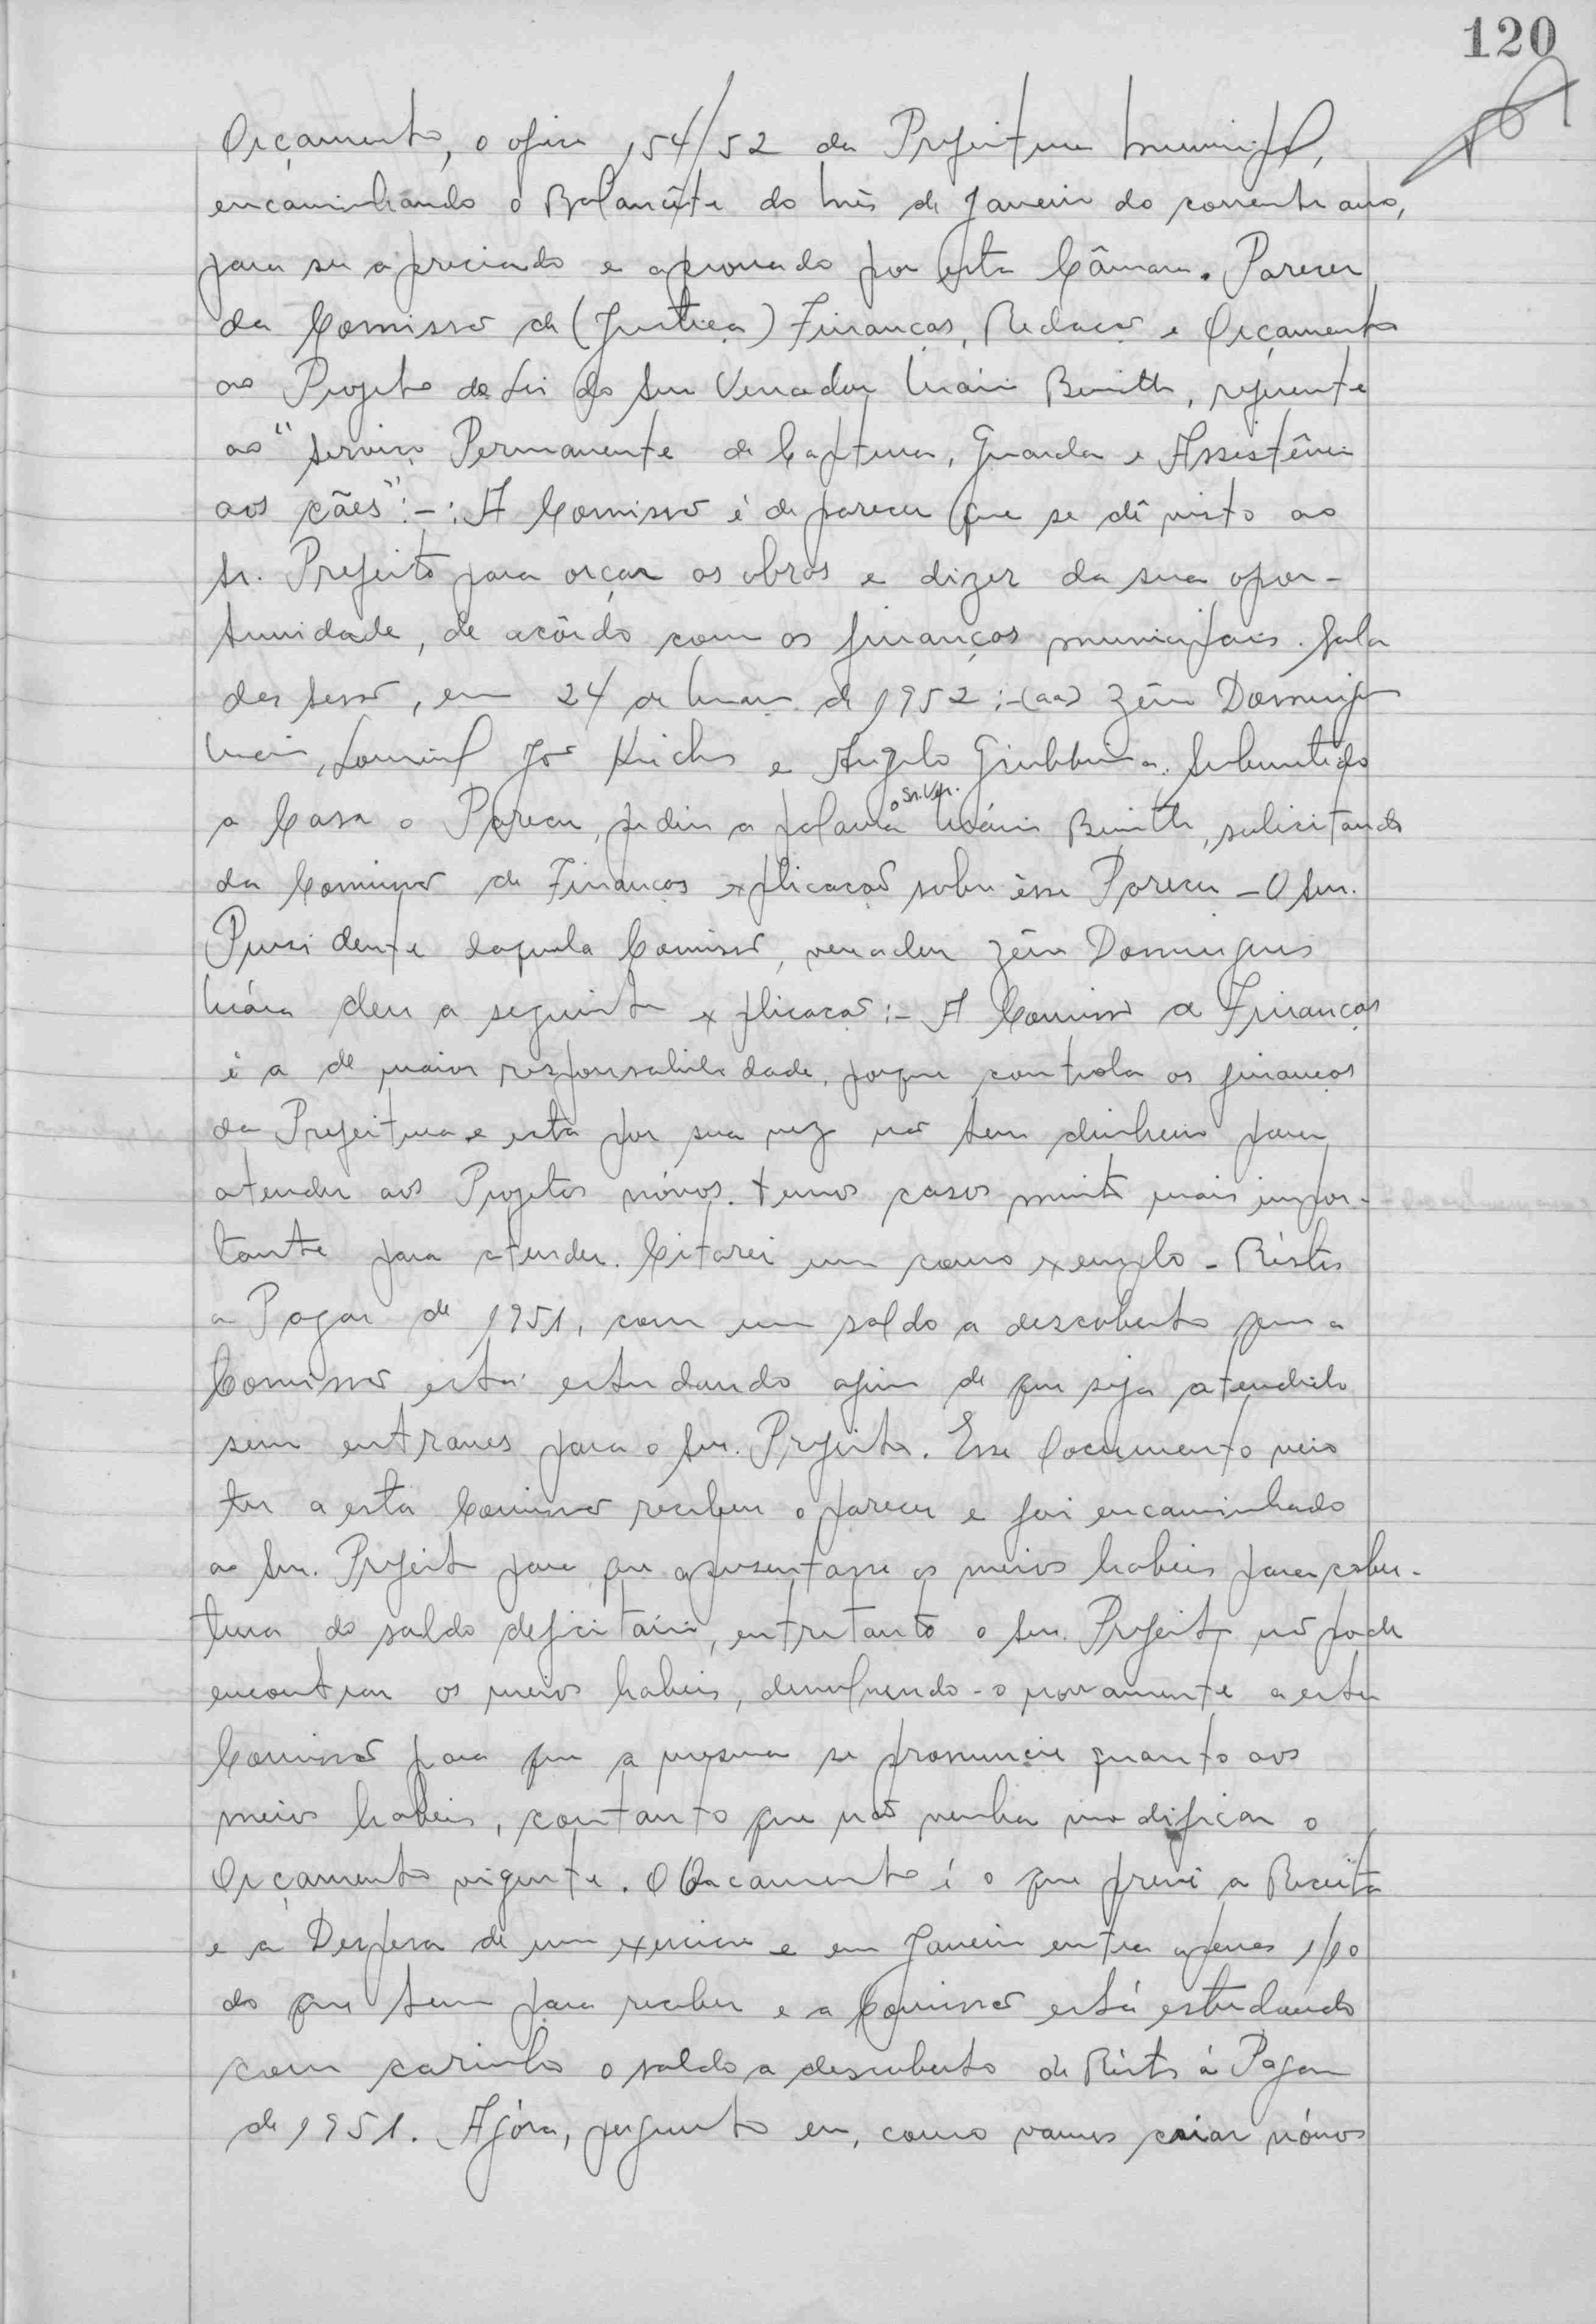 120
Orçamento, o oficio 154/52 da Prefeitura Municipal,
encaminhando o Balancête do mês de Janeiro do corrente ano,
para ser apreciado e aprovado por esta Câmara. Parecer
da Comissão de (Justiça) Finanças, Redação e Orçamento
ao Projeto de Lei do Snr Vereador Mário Benitth, referente
ao "Serviço Permanente de Captura, Guarda e Assistência
aos cães":-: A Comissão é de parecer que se dê visto ao
Sr. Prefeito para orçar as obras e dizer da sua opor-
tunidade, de acôrdo com as finanças municipais. Sala
das sessões, em 24 de Março de 1952:-(aa) Zêno Domingues
Lourival José e Angelo Submetido
a Casa o Parecer, pediu a palavra o Sr. Ver. Mário Benitth, solicitando
da Comissão de Finanças explicação sobre êsse Parecer - O Snr.
Presidente daquela Comissão, vereador Zêno Domingues
deu a seguinte explicação:- A Comissão de Finanças
é a de maior responsabilidade, porque controla as finanças
da Prefeitura e esta por sua vez não tem dinheiro para
atender aos Projetos nóvos. temos casos muito mais impor-
tante para atender. Citarei um como exemplo - Réstos
a Pagar de 1951, com um saldo a descoberto que a
Comissão está estudando afim de que seja atendido
sem entraves para o Snr. Prefeito. Esse documento veio
ter a esta Comissão recebeu o parecer e foi encaminhado
ao Snr. Prefeito para que apresentasse os meios habeis para cober-
tura do saldo deficitário, entretanto o Snr. Prefeito não poude
encontrar os meios habeis, devolvendo-o novamente a esta
Comissão para que a mesma se pronuncie quanto aos
meios habeis, contanto que não venha modificar o
Orçamento vigente. O Orçamento é o que prevê a Receita
e a Despesa de um exercicio e em Janeiro entra apenas 1/10
do que tem para receber e a Comissão está estudando
com carinho o saldo a descoberto de Réstos á Pagar
de 1951. Agóra, pergunto eu, como vamos criar nóvos